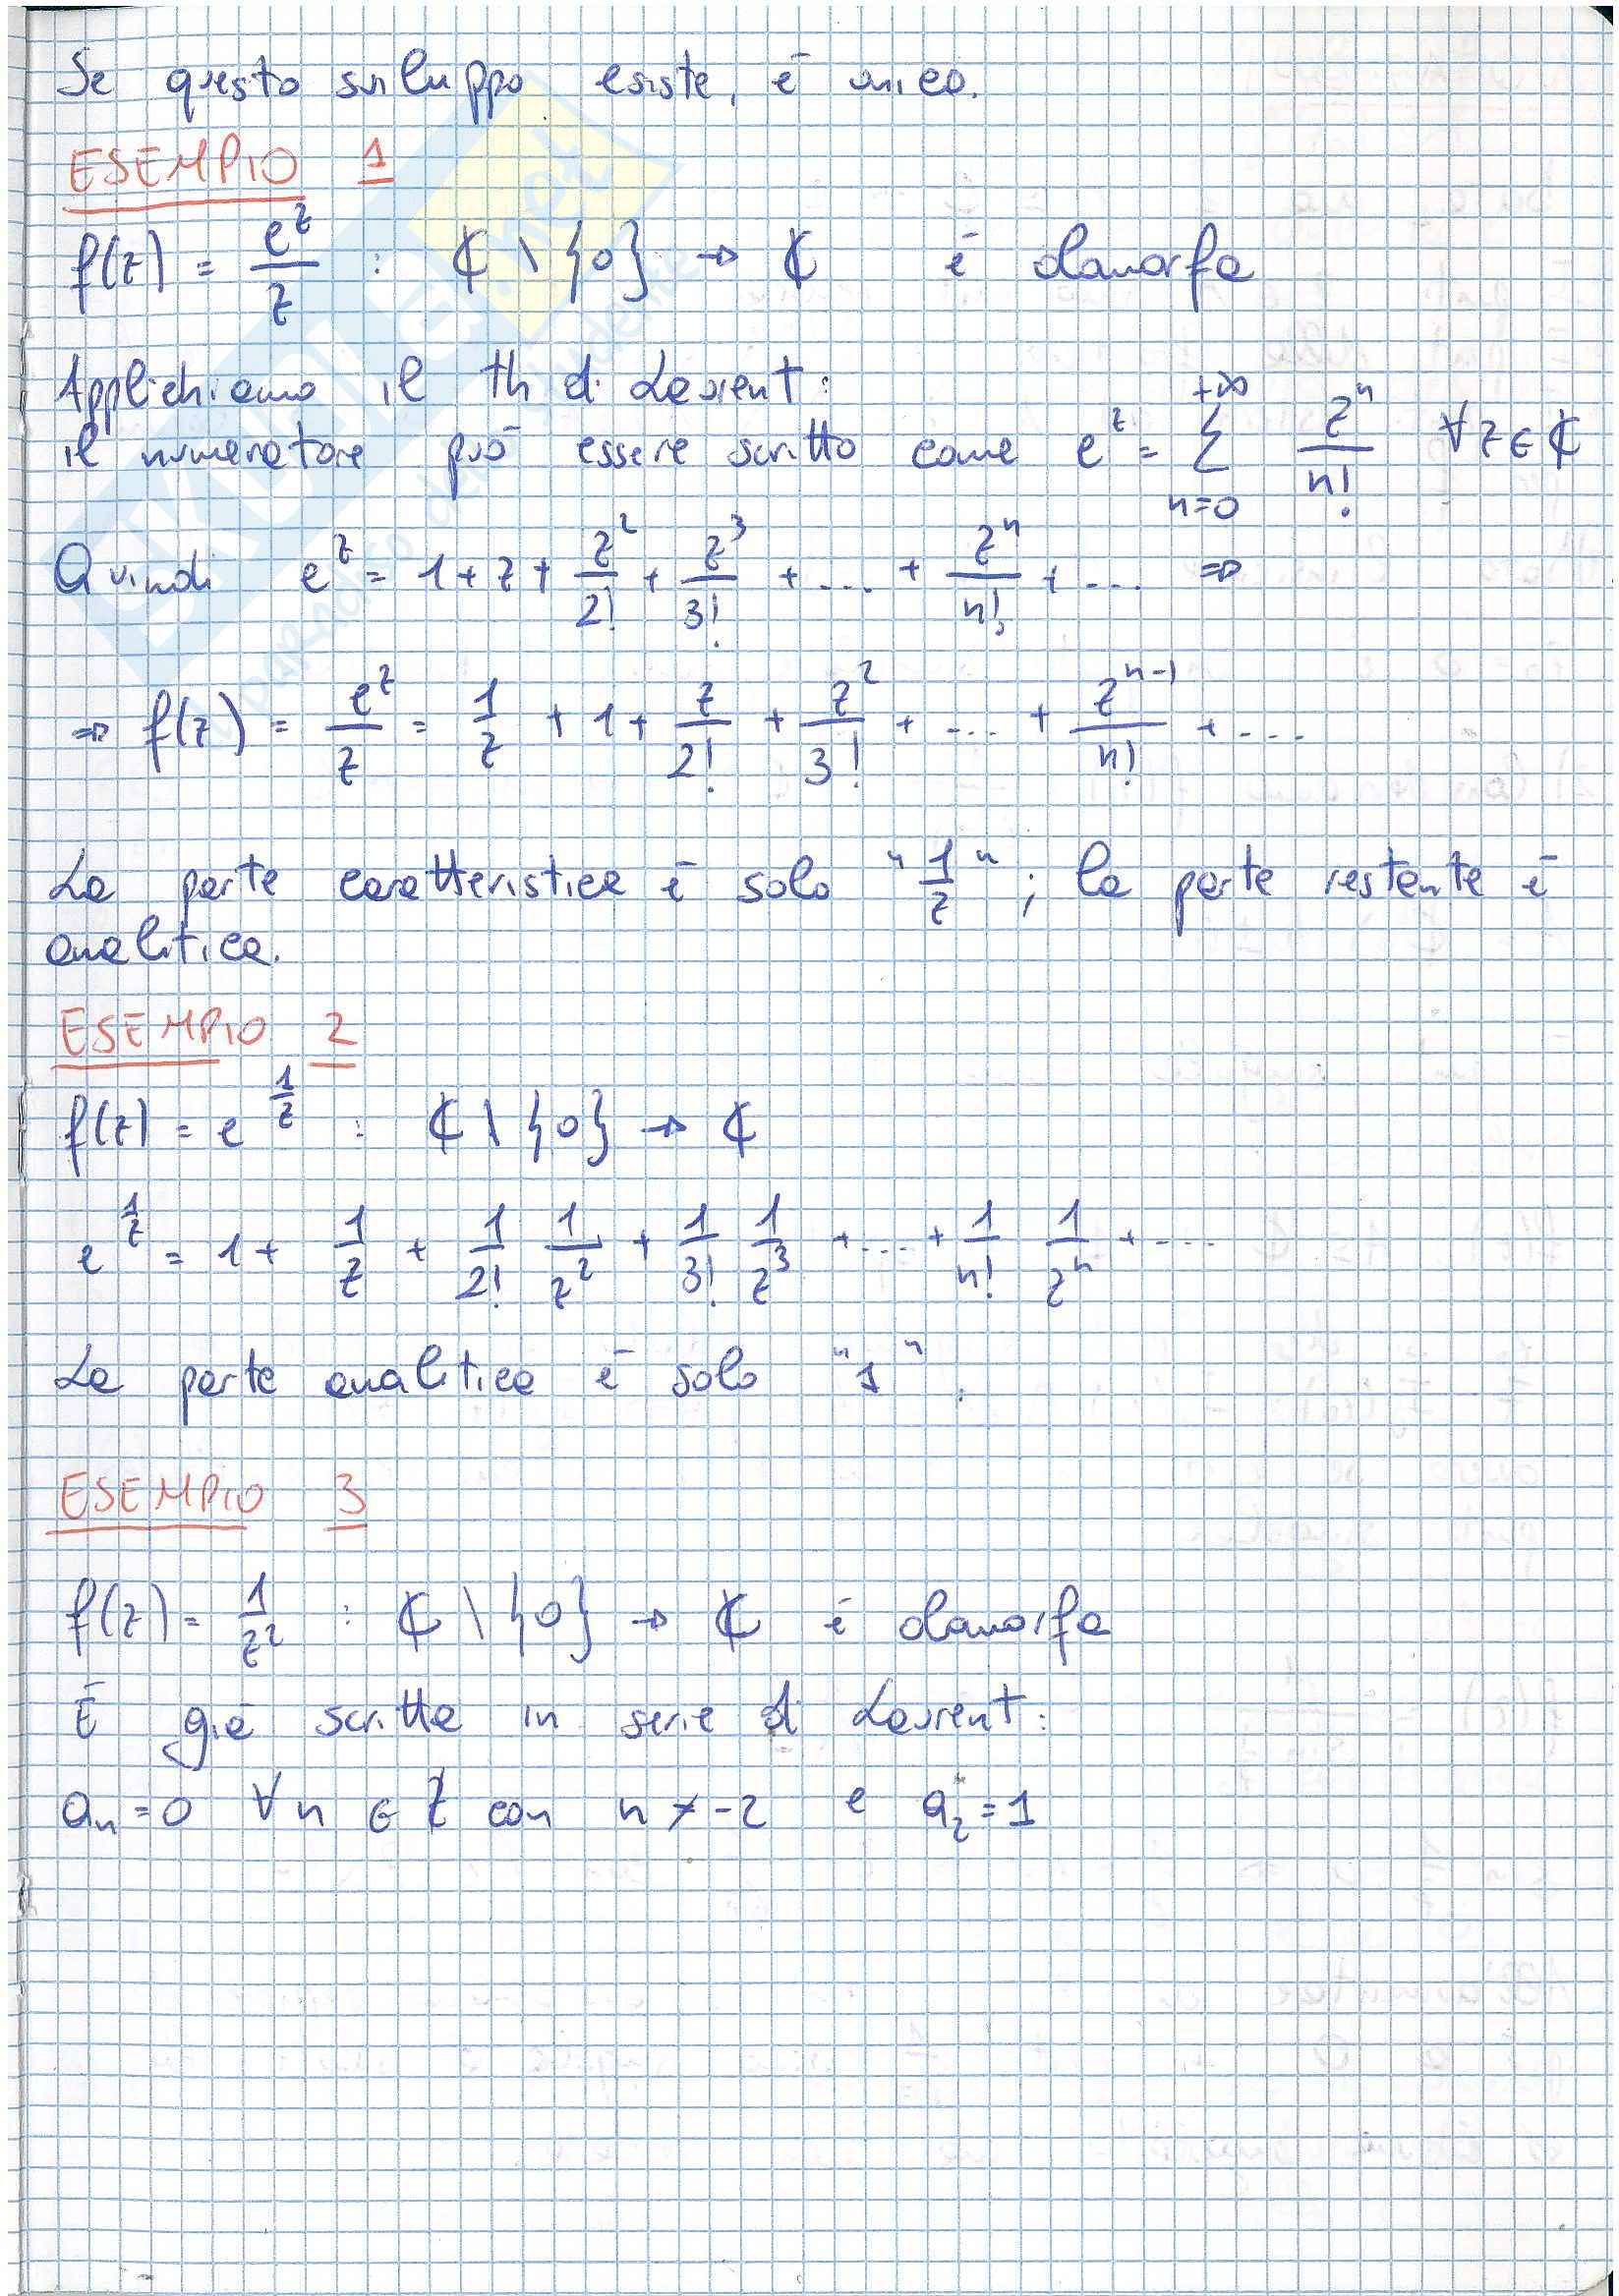 Se questo sviluppo esiste, è unico.
ESEMPIO 1
f(z) = e^z/z : ℂ \ {0} → ℂ è olomorfa
Applichiamo il th di Laurent:
il numeratore può essere scritto come e^z = ∑_{n=0}^{+∞} z^n/n! ∀ z ∈ ℂ
Quindi e^z = 1 + z + z^2/2! + z^3/3! + ... + z^n/n! + ... ⇒
⇒ f(z) = e^z/z = 1/z + 1 + z/2! + z^2/3! + ... + z^{n-1}/n! + ...
La parte caratteristica è solo "1/z" ; la parte restente è
analitica.
ESEMPIO 2
f(z) = e^{1/z} : ℂ \ {0} → ℂ
e^{1/z} = 1 + 1/z + 1/2! 1/z^2 + 1/3! 1/z^3 + ... + 1/n! 1/z^n + ...
La parte analitica è solo "1".
ESEMPIO 3
f(z) = 1/z^2 : ℂ \ {0} → ℂ è olomorfa
È già scritta in serie di Laurent:
a_n = 0 ∀ n ∈ ℤ con n ≠ -2 e a_2 = 1